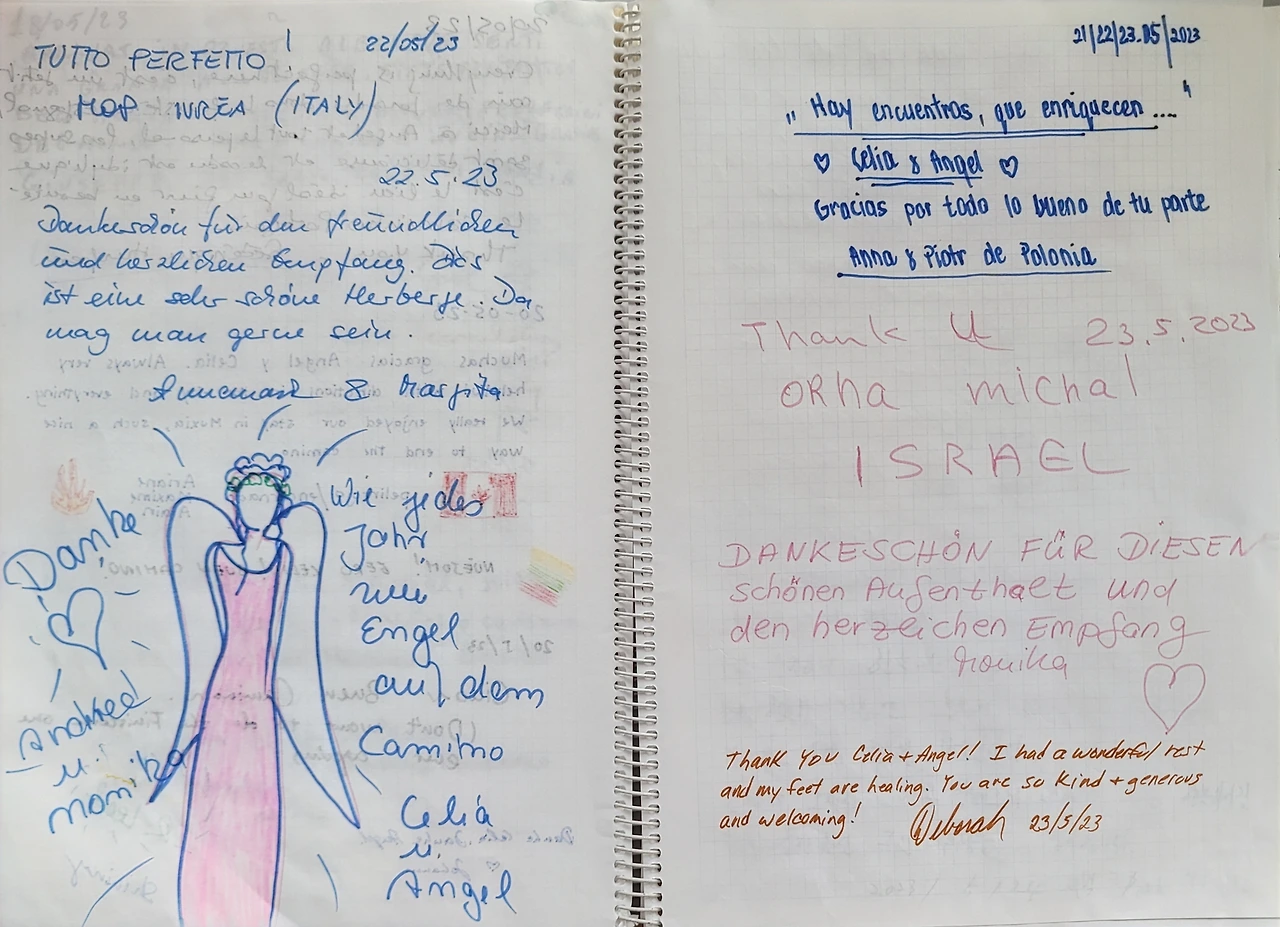 TUTTO PERFETTO! 22/05/23
IVREA (ITALY)
22.5.23
Dankeschön für den freundlichen
und herzlichen Empfang. Dies
ist eine sehr schöne Herberge. Da
mag man gerne sein.
Annemarie & Margita
Danke
Andrea
u.
Monika
Wie jedes
Jahr
nur
Engel
auf dem
Camino
Celia
u.
Angel
21/22/23.05/2023
„Hay encuentros, que enriquecen...."
♡ Celia & Angel ♡
Gracias por todo lo bueno de tu parte
Anna & Piotr de Polonia
Thank U 23.5.2023
ORna michal
ISRAEL
DANKESCHÖN FÜR DIESEN
schönen Aufenthalt und
den herzlichen Empfang
Monika
Thank You Celia + Angel! I had a wonderful rest
and my feet are healing. You are so kind + generous
and welcoming! Deborah 23/5/23